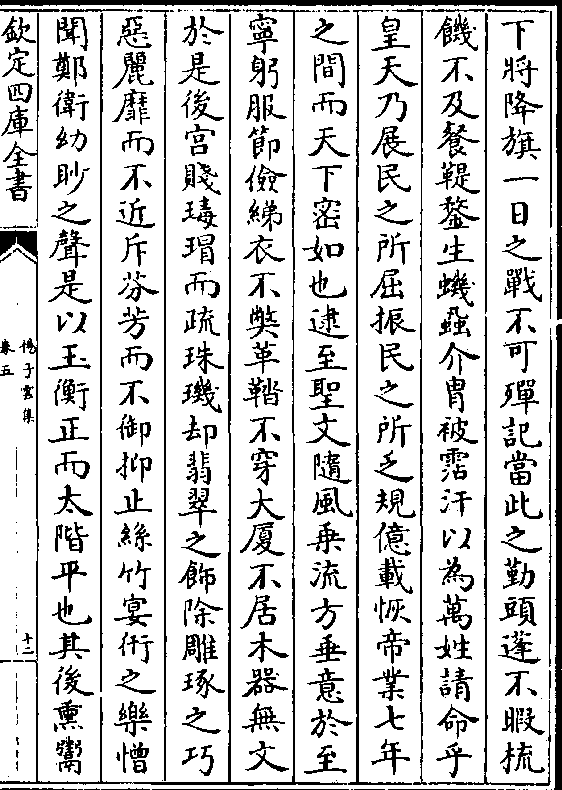 下將降旗一日之戰不可殫記當此之勤頭蓬不暇梳
饑不及餐鞮鍪生蟣蝨介胄被霑汗以為萬姓請命乎
皇天乃展民之所屈振民之所乏規億載恢帝業七年
之間而天下密如也逮至聖文隨風乗流方垂意於至
寧躬服節儉綈衣不獘革鞜不穿大厦不居木器無文
於是後宮賤瑇瑁而疏珠璣却翡翠之飾除雕琢之巧
惡麗靡而不近斥芬芳而不御抑止絲竹宴衍之樂憎
聞鄭衛幼眇之聲是以玉衡正而太階平也其後熏鬻
欽定四庫全書
揚子雲集
卷五
十二